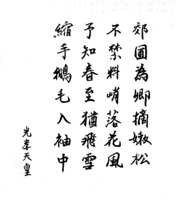 郊圃為卿摘嫩松
不禁料峭落花風
予知春至猶飛雪
縮手鵝毛入袖中
光孝天皇